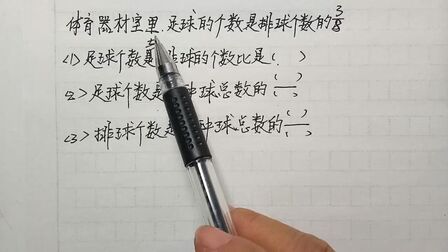 体育器材室里.足球的个数是排球个数的3/8
(1)足球个数是 排球的个数比是( )
(2)足球个数是 中球总数的( )/( )
(3)排球个数是 中球总数的( )/( )